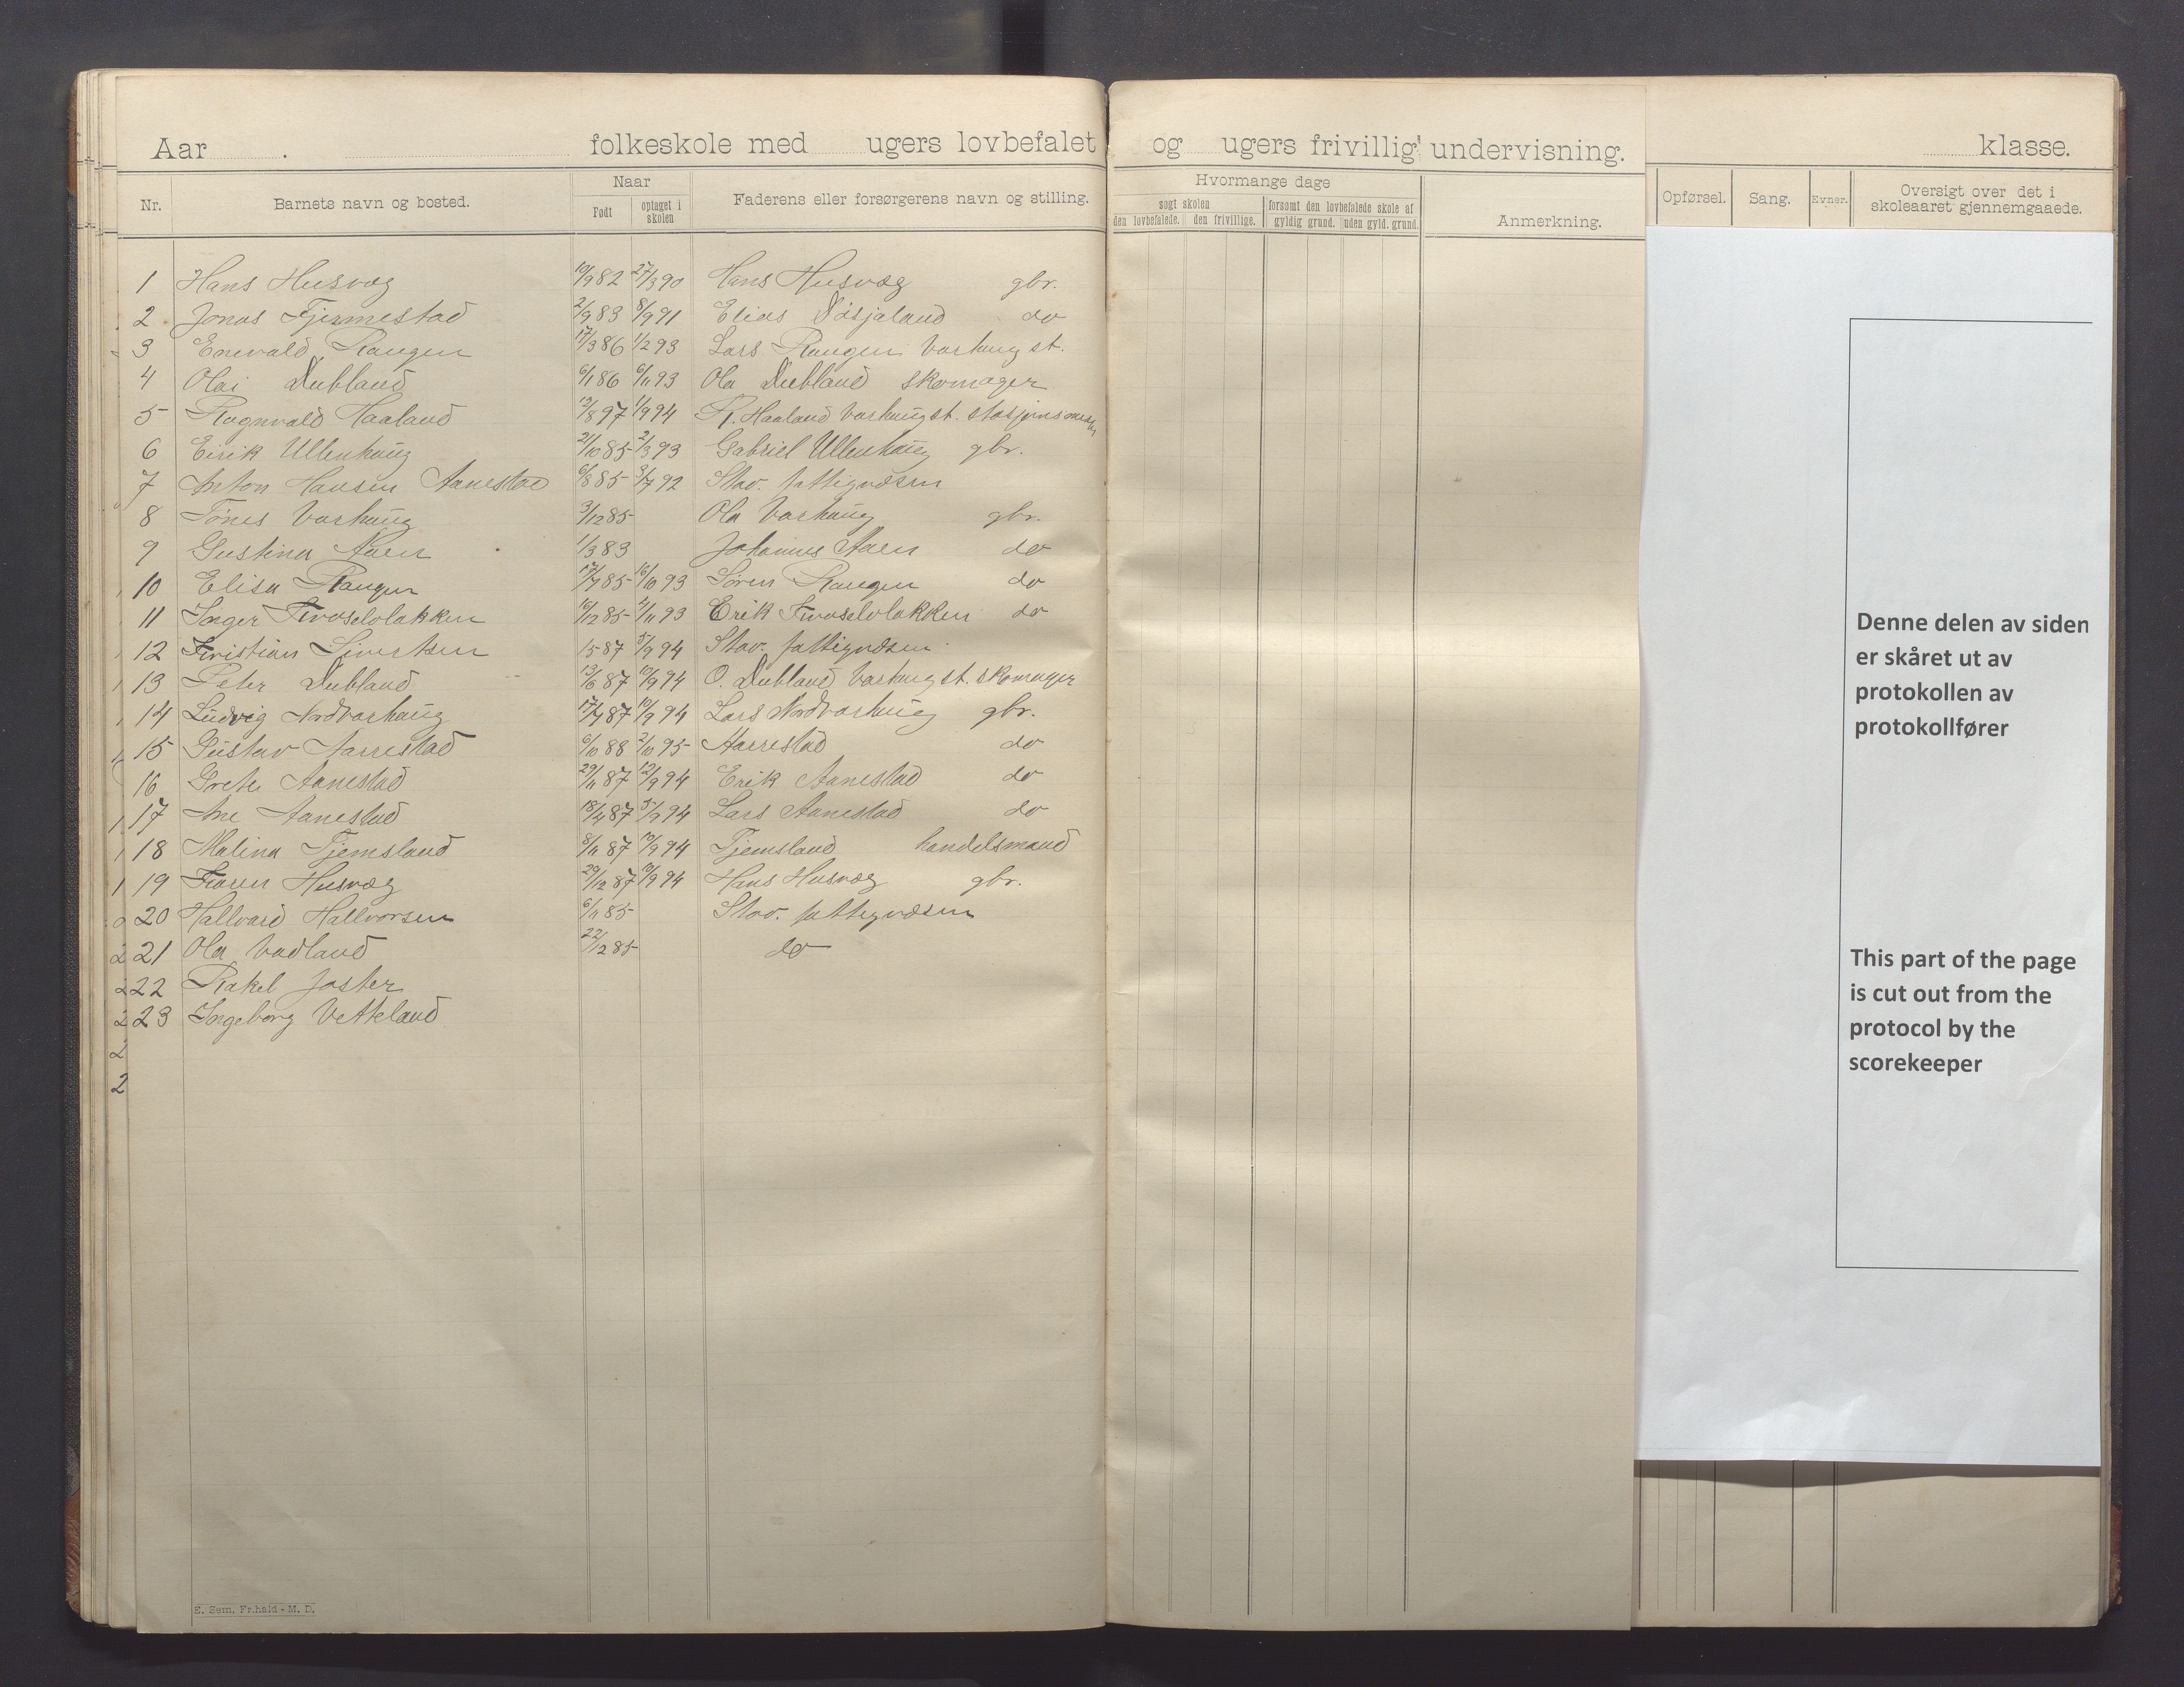 Aar . folkeskole med ugers lovbefalet og ugers frivillig undervisning. klasse.
Nr. Barnets navn og bosted. Naar Født optaget i skolen Faderens eller forsørgerens navn og stilling. Hvormange dage søgt skolen den lovbefalede. den frivillige. forsømt den lovbefalede skole af gyldig grund. uden gyld. grund. Anmerkning. Opførsel. Sang. Evner. Oversigt over det i skoleaaret gjennemgaaede.
1 Hans Husvæg 19/9 82 27/3 90 Hans Husvæg gbr.
2 Jonas Fjermestad 2/9 83 8/9 91 Elias do
3 Enevald Rangen 17/3 86 1/2 93 Lars Rangen Varhaug st.
4 Olai Dubland 6/1 86 6/11 93 Ola Dubland skomager
5 Ragnvald Haaland 12/8 97 1/9 94 R. Haaland Varhaug st.
6 Eirik Ullenhaug 21/10 85 2/3 93 Gabriel Ullenhaug gbr.
7 Anton Hansen Aanestad 6/8 85 3/7 92 Stav. fattigvæsen
8 Tønes Varhaug 3/12 85 Ola Varhaug gbr.
9 Gustina Aaen 1/3 83 Johannes Aaen do
10 Elisa Rangen 17/7 85 16/10 93 Søren Rangen do
11 Inger 16/12 85 2/11 93 Erik do
12 Kristian Sivertsen 15 87 5/9 94 Stav. fattigvæsen
13 Peter Dubland 13/6 87 10/9 94 O. Dubland Varhaug st. skomager
14 Ludvig Nordvarhaug 17/7 87 10/9 94 Lars Nordvarhaug gbr.
15 Gustav Aarrestad 6/10 88 2/10 95 Aarrestad do
16 Grete Aanestad 29/11 87 12/9 94 Erik Aanestad do
17 Ane Aanestad 18/4 87 5/9 94 Lars Aanestad do
18 Malina Tjemsland 8/11 87 10/9 94 Tjemsland handelsmand
19 Karen Husvæg 29/12 87 10/9 94 Hans Husvæg gbr.
20 Hallvard Hallvorsen 6/11 85 Stav. fattigvæsen
21 Ola Vadland 22/12 85 do
22 Rakel Joster
23 Ingeborg Vetteland
2
2
E. Sem, Fr.hald - M. D.
Denne delen av siden
er skåret ut av
protokollen av
protokollfører
This part of the page
is cut out from the
protocol by the
scorekeeper